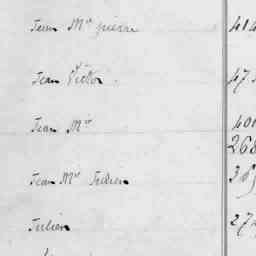 Jean Mie pierre 414
Jean Victor 47
Jean Mie 400
268
Jean Mie Julien 36
Julien 27